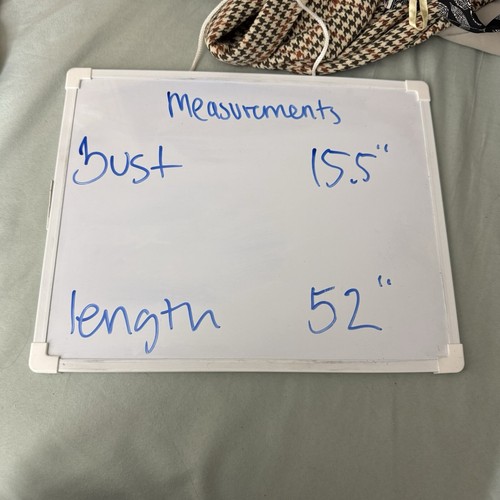 Measurements
Bust 15.5"
length 52"